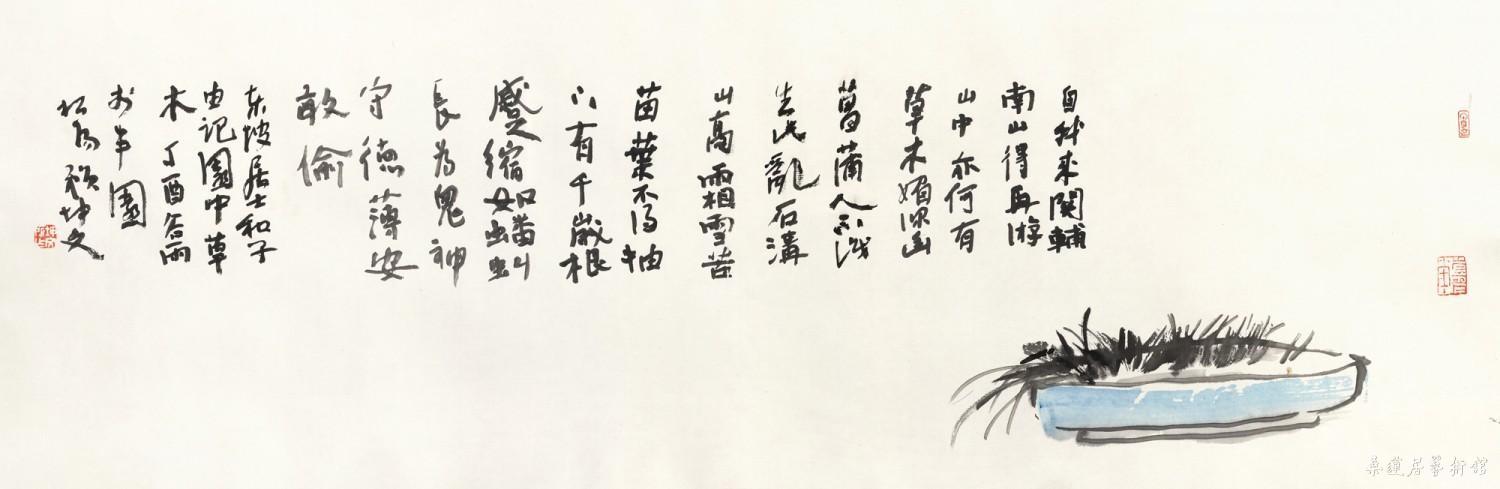 自我来関輔
南山得再游
山中亦何有
草木媚深幽
菖蒲人不识
生此亂石溝
山高霜雪苦
苗葉不得抽
下有千歲根
蹙縮如蟠虬
長为鬼神
守德薄安
敢偷
东坡居士和子
由记園中草
木丁酉谷雨
於半園
坤文
桑蓮居藝術館